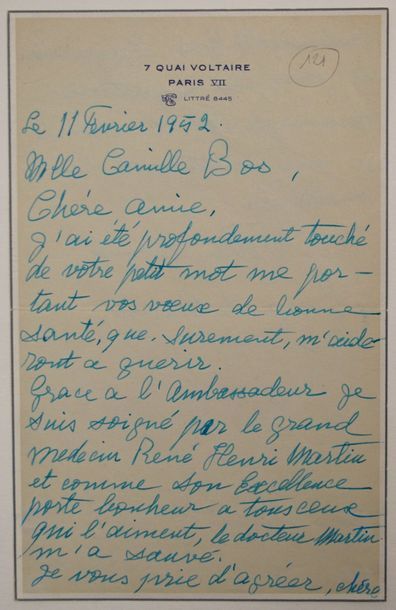 7 QUAI VOLTAIRE
PARIS VII
LITTRÉ 6445
121
Le 11 Février 1952.
Mlle Camille Bos,
Chére Amie,
J'ai été profondement touché
de votre petit mot me por-
tant vos vœux de bonne
santé, que. surement, m'aide-
ront a guerir.
Grace a l'Ambassadeur je
suis soigné par le grand
medecin René Henri Martin
et comme Son Excellence
porte bonheur a tous ceux
qui l'aiment, le docteur Martin
m'a sauvé.
Je vous prie d'agréer, chére